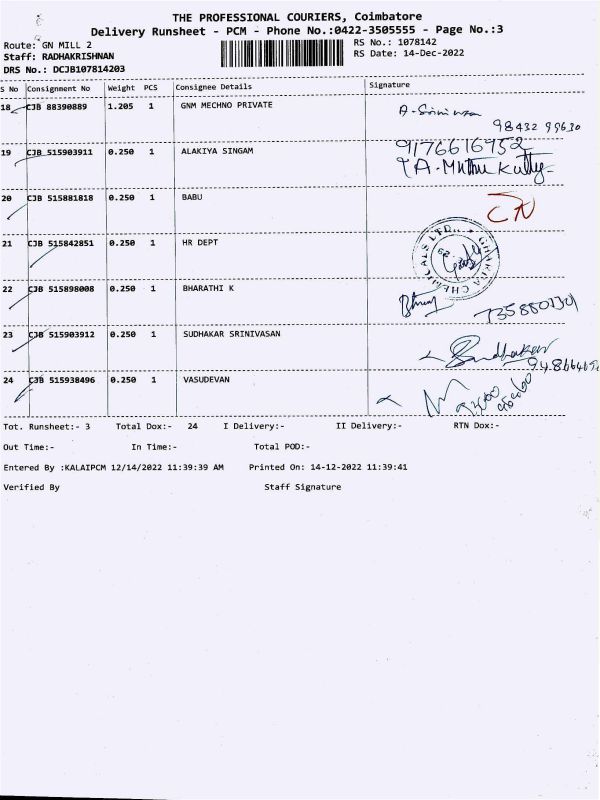 THE PROFESSIONAL COURIERS, Coimbatore
Delivery Runsheet - PCM - Phone No.:0422-3505555 - Page No.:3
Route: GN MILL 2 RS No.: 1078142
Staff: RADHAKRISHNAN RS Date: 14-Dec-2022
DRS No.: DCJB107814203
S No Consignment No Weight PCS Consignee Details Signature
18 CJB 88390889 1.205 1 GNM MECHNO PRIVATE A-Srinivasan
98432 99630
19 CJB 515903911 0.250 1 ALAKIYA SINGAM 9176616952
A. Muthu Kutty
20 CJB 515881818 0.250 1 BABU
21 CJB 515842851 0.250 1 HR DEPT
22 CJB 515898008 0.250 1 BHARATHI K
23 CJB 515903912 0.250 1 SUDHAKAR SRINIVASAN Sudhakar
24 CJB 515938496 0.250 1 VASUDEVAN
Tot. Runsheet:- 3 Total Dox:- 24 I Delivery:- II Delivery:- RTN Dox:-
Out Time:- In Time:- Total POD:-
Entered By :KALAIPCM 12/14/2022 11:39:39 AM Printed On: 14-12-2022 11:39:41
Verified By Staff Signature